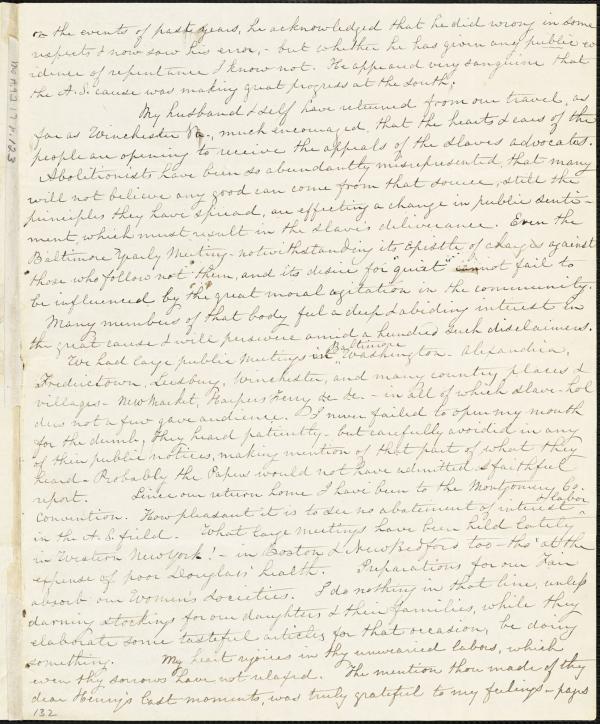 on the events of past years, he acknowledged that he did wrong in some
respects & now saw his error, - but whether he has given any public ev
idence of repentance I know not. He appeared very sanguine that
the A.S. cause was making great progress at the south;
My husband & self have returned from our travel, as
far as Winchester Va., much encouraged, that the hearts & ears of the
people are opening to receive the appeals of the slaves advocates.
Abolitionists have been so abundantly misrepresented, that many
will not believe any good can come from that source, still the
principles they have spread, are effecting a change in public senti-
ment which must result in the slave's deliverance. Even the
Baltimore Yearly Meeting - notwithstanding its Epistle of charges against
those who follow not them, and its desire for "quiet" cannot fail to
be influenced by the great moral agitation in the community.
Many members of that body feel a deep & abiding interest in
the great cause & will persevere amid a hundred such disclaimers.
We had large public Meetings in Baltimore Washington - Alexandria,
Fredericktown, Leesburg, Winchester, and many country places &
villages - New Market, Harpers Ferry &c &c. - in all of which slave-hol
ders not a few gave audience. I never failed to open my mouth
for the dumb; they heard patiently - but carefully avoided in any
of their public notices, making mention of that part of what they
heard - Probably the Papers would not have admitted a faithful
report. Since our return home I have been to the Montgomery Co.
Convention. How pleasant it is to see no abatement of interest & labor
in the A.S. field. What large meetings have been held lately
in Western New York! - in Boston & New Bedford too - tho' at the
expense of poor Douglass' health. Preparations for our Fair
absorb our Women's Societies. I do nothing in that line, unless
darning stockings for our daughters & their families, while they
elaborate some tasteful articles for that occasion, be doing
something. My heart rejoices in thy unwearied labors, which
even thy sorrows have not relaxed. The mention thou made of thy
dear Henry's last moments, was truly grateful to my feelings - pages
132